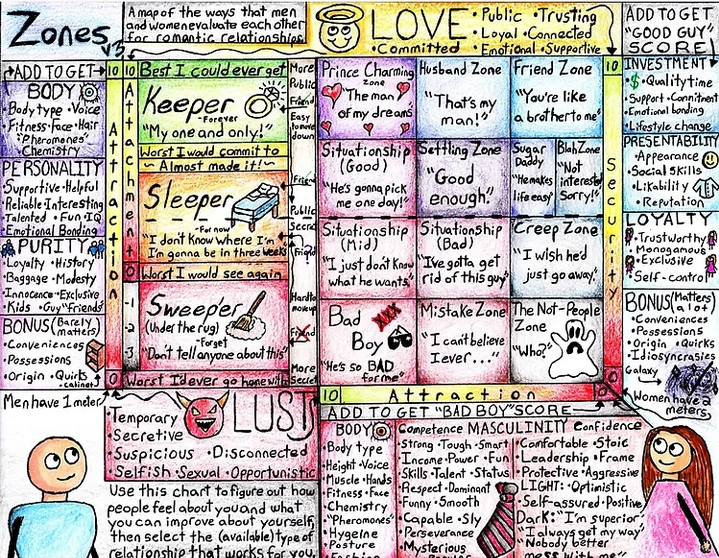 Zones
V3
A map of the ways that men
and women evaluate each other
for romantic relationships.
LOVE
•Public •Trusting
•Loyal •Connected
•Committed •Emotional •Supportive
ADD TO GET
"GOOD GUY"
SCORE!
ADD TO GET
BODY
Body type •Voice
•Fitness•Face•Hair
"Pheromones"
Chemistry
PERSONALITY
Supportive•Helpful
Reliable•Interesting
Talented •Fun•IQ
Emotional Bonding
PURITY
•Loyalty •History
•Baggage •Modesty
•Innocence•Exclusive
•Kids •Guy "Friends"
BONUS (Barely
matters)
•Conveniences
•Possessions
•Origin •Quirks
•cabinet
10
Attraction
0
10
Attachment
0
-1
-2
-3
Best I could ever get
Keeper
-Forever
"My one and only!"
Worst I would commit to
~ Almost made it! ~
Sleeper
-For now
"I don't know where I'm
I'm gonna be in three weeks"
Worst I would see again
Sweeper
(Under the rug)
-Forget
"Don't tell anyone about this"
Worst I'd ever go home with
More
Public
Friend
Easy
to move
down
Friend
Public
Secret
Friend
Hard to
move up
Friend
More
Secret
Prince Charming
Zone
"The man
of my dreams"
Husband Zone
"That's my
man!"
Friend Zone
"You're like
a brother to me"
Situationship
(Good)
"He's gonna pick
me one day!"
Settling Zone
"Good
enough."
Sugar
Daddy
"He makes
life easy"
Blah Zone
"Not
interested
Sorry!"
Situationship
(Mid)
"I just don't know
what he wants."
Situationship
(Bad)
"I've gotta get
rid of this guy"
Creep Zone
"I wish he'd
just go away."
Bad
Boy
XXX
"He's so BAD
for me"
Mistake Zone
"I can't believe
I ever..."
The Not-People
Zone
"Who?"
10
Security
0
10
Attraction
0
INVESTMENT
•$ •Quality time
Support •Commitment
•Emotional bonding
•Lifestyle change
PRESENTABILITY
•Appearance
•Social Skills
•Likability
•Reputation
LOYALTY
•Trustworthy
•Monogamous
•Exclusive
•Self-control
BONUS (Matters
a lot)
•Conveniences
•Possessions
•Origin •Quirks
•Idiosyncrasies
Galaxy
Women have 2
meters
Men have 1 meter
•Temporary
•Secretive
LUST
•Suspicious •Disconnected
•Selfish •Sexual •Opportunistic
Use this chart to figure out how
people feel about you and what
you can improve about yourself,
then select the (available) type of
relationship that works for you.
ADD TO GET "BAD BOY" SCORE
BODY
•Body type
•Height •Voice
•Muscle •Hands
•Fitness •Face
•Chemistry
•"Pheromones"
•Hygeine
•Posture
Competence MASCULINITY Confidence
Strong •Tough •Smart
Income •Power •Fun
Skills •Talent •Status
Respect •Dominant
Funny •Smooth
•Capable •Sly
Perseverance
•Mysterious
•Comfortable •Stoic
•Leadership •Frame
•Protective •Aggressive
LIGHT: •Optimistic
•Self-assured •Positive
Dark: "I'm superior"
"I always get my way"
"Nobody better
mess with me"